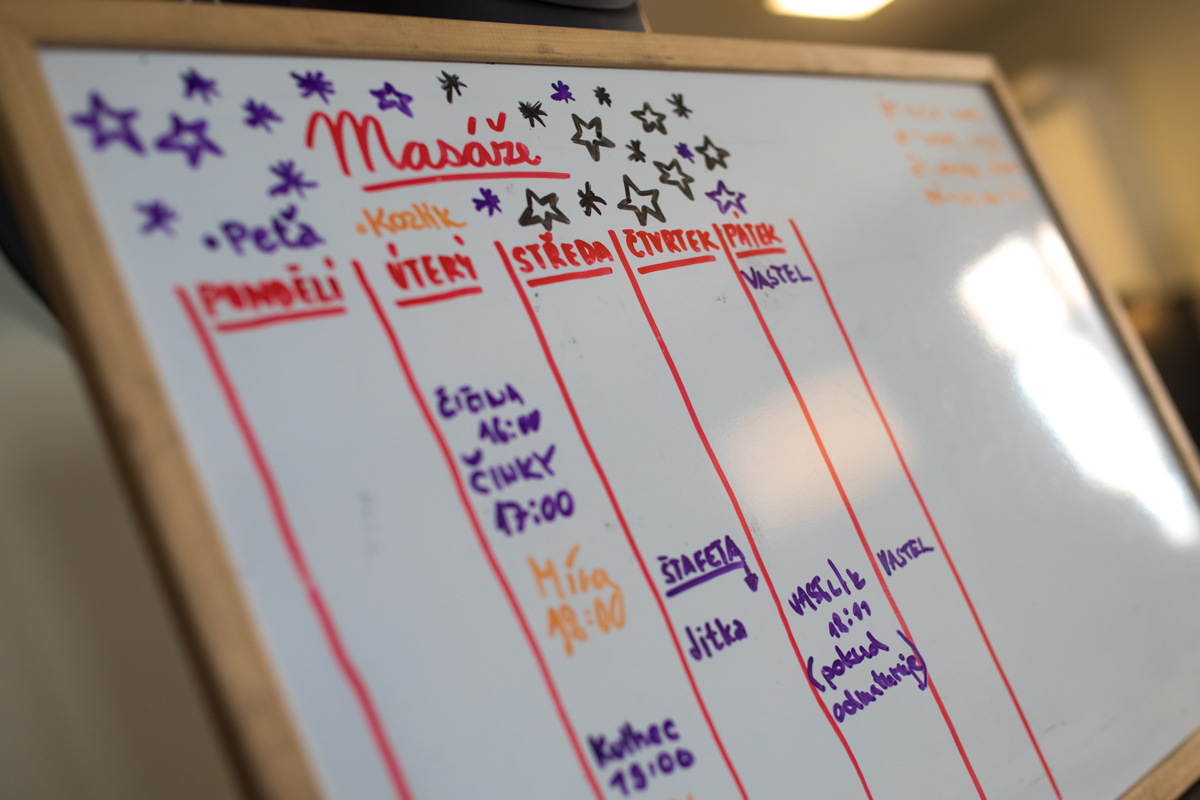 Masáže
• Peťa
• Kozlík
PONDĚLÍ
ÚTERÝ
STŘEDA
ČTVRTEK
PÁTEK
VASTEL
ČIČINA
16:00
ČINKY
17:00
Míra
18:00
Kulhec
19:00
ŠTAFETA
Jitka
VASTLÍK
18:11
(pokud
odmaturuje)
VASTEL